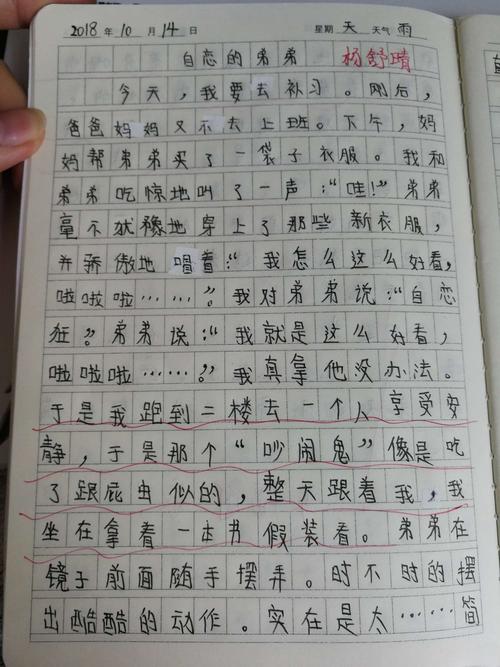 2018年10月14日 星期天 天气雨
自恋的弟弟 杨舒晴
今天，我要去补习。刚后，
爸爸妈妈又不去上班。下午，妈
妈帮弟弟买了一袋子衣服。我和
弟弟吃惊地叫了一声：“哇！”弟弟
毫不犹豫地穿上了那些新衣服，
并骄傲地唱着：“我怎么这么好看，
啦啦啦……”？我对弟弟说：“自恋
狂？弟弟说：“我就是这么好看，
啦啦啦……”？我真拿他没办法。
于是我跑到二楼去一个人享受安
静，于是那个“吵闹鬼”像是吃
了跟屁虫似的，整天跟着我，我
坐在拿着一本书假装看。弟弟在
镜子前面随手摆弄。时不时的摆
出酷酷的动作。实在是太……简